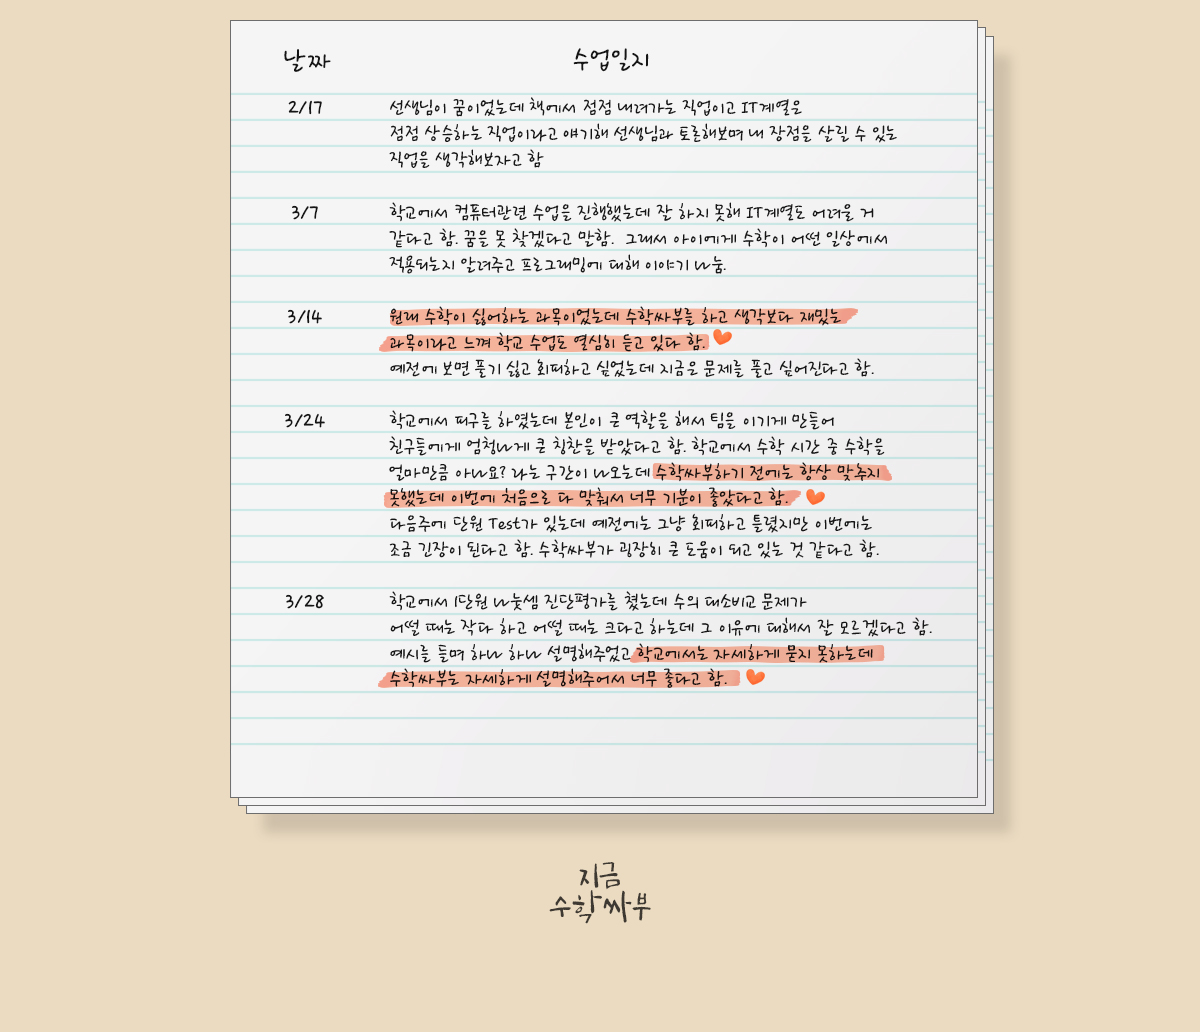 날짜 수업일지
2/17 선생님이 꿈이었는데 책에서 점점 내려가는 직업이고 IT계열은
점점 상승하는 직업이라고 얘기해 선생님과 토론해보며 내 장점을 살릴 수 있는
직업을 생각해보자고 함
3/7 학교에서 컴퓨터관련 수업을 진행했는데 잘 하지 못해 IT계열도 어려울 거
같다고 함. 꿈을 못 찾겠다고 말함. 그래서 아이에게 수학이 어떤 일상에서
적용되는지 알려주고 프로그래밍에 대해 이야기 나눔.
3/14 원래 수학이 싫어하는 과목이었는데 수학싸부를 하고 생각보다 재밌는
과목이라고 느껴 학교 수업도 열심히 듣고 있다 함.
예전에 보면 풀기 싫고 회피하고 싶었는데 지금은 문제를 풀고 싶어진다고 함.
3/24 학교에서 피구를 하였는데 본인이 큰 역할을 해서 팀을 이기게 만들어
친구들에게 엄청나게 큰 칭찬을 받았다고 함. 학교에서 수학 시간 중 수학을
얼마만큼 아나요? 라는 구간이 나오는데 수학싸부하기 전에는 항상 맞추지
못했는데 이번에 처음으로 다 맞춰서 너무 기분이 좋았다고 함.
다음주에 단원 Test가 있는데 예전에는 그냥 회피하고 틀렸지만 이번에는
조금 긴장이 된다고 함. 수학싸부가 굉장히 큰 도움이 되고 있는 것 같다고 함.
3/28 학교에서 1단원 나눗셈 진단평가를 쳤는데 수의 대소비교 문제가
어떨 때는 작다 하고 어떨 때는 크다고 하는데 그 이유에 대해서 잘 모르겠다고 함.
예시를 들며 하나 하나 설명해주었고 학교에서는 자세하게 묻지 못하는데
수학싸부는 자세하게 설명해주어서 너무 좋다고 함.
지금
수학싸부